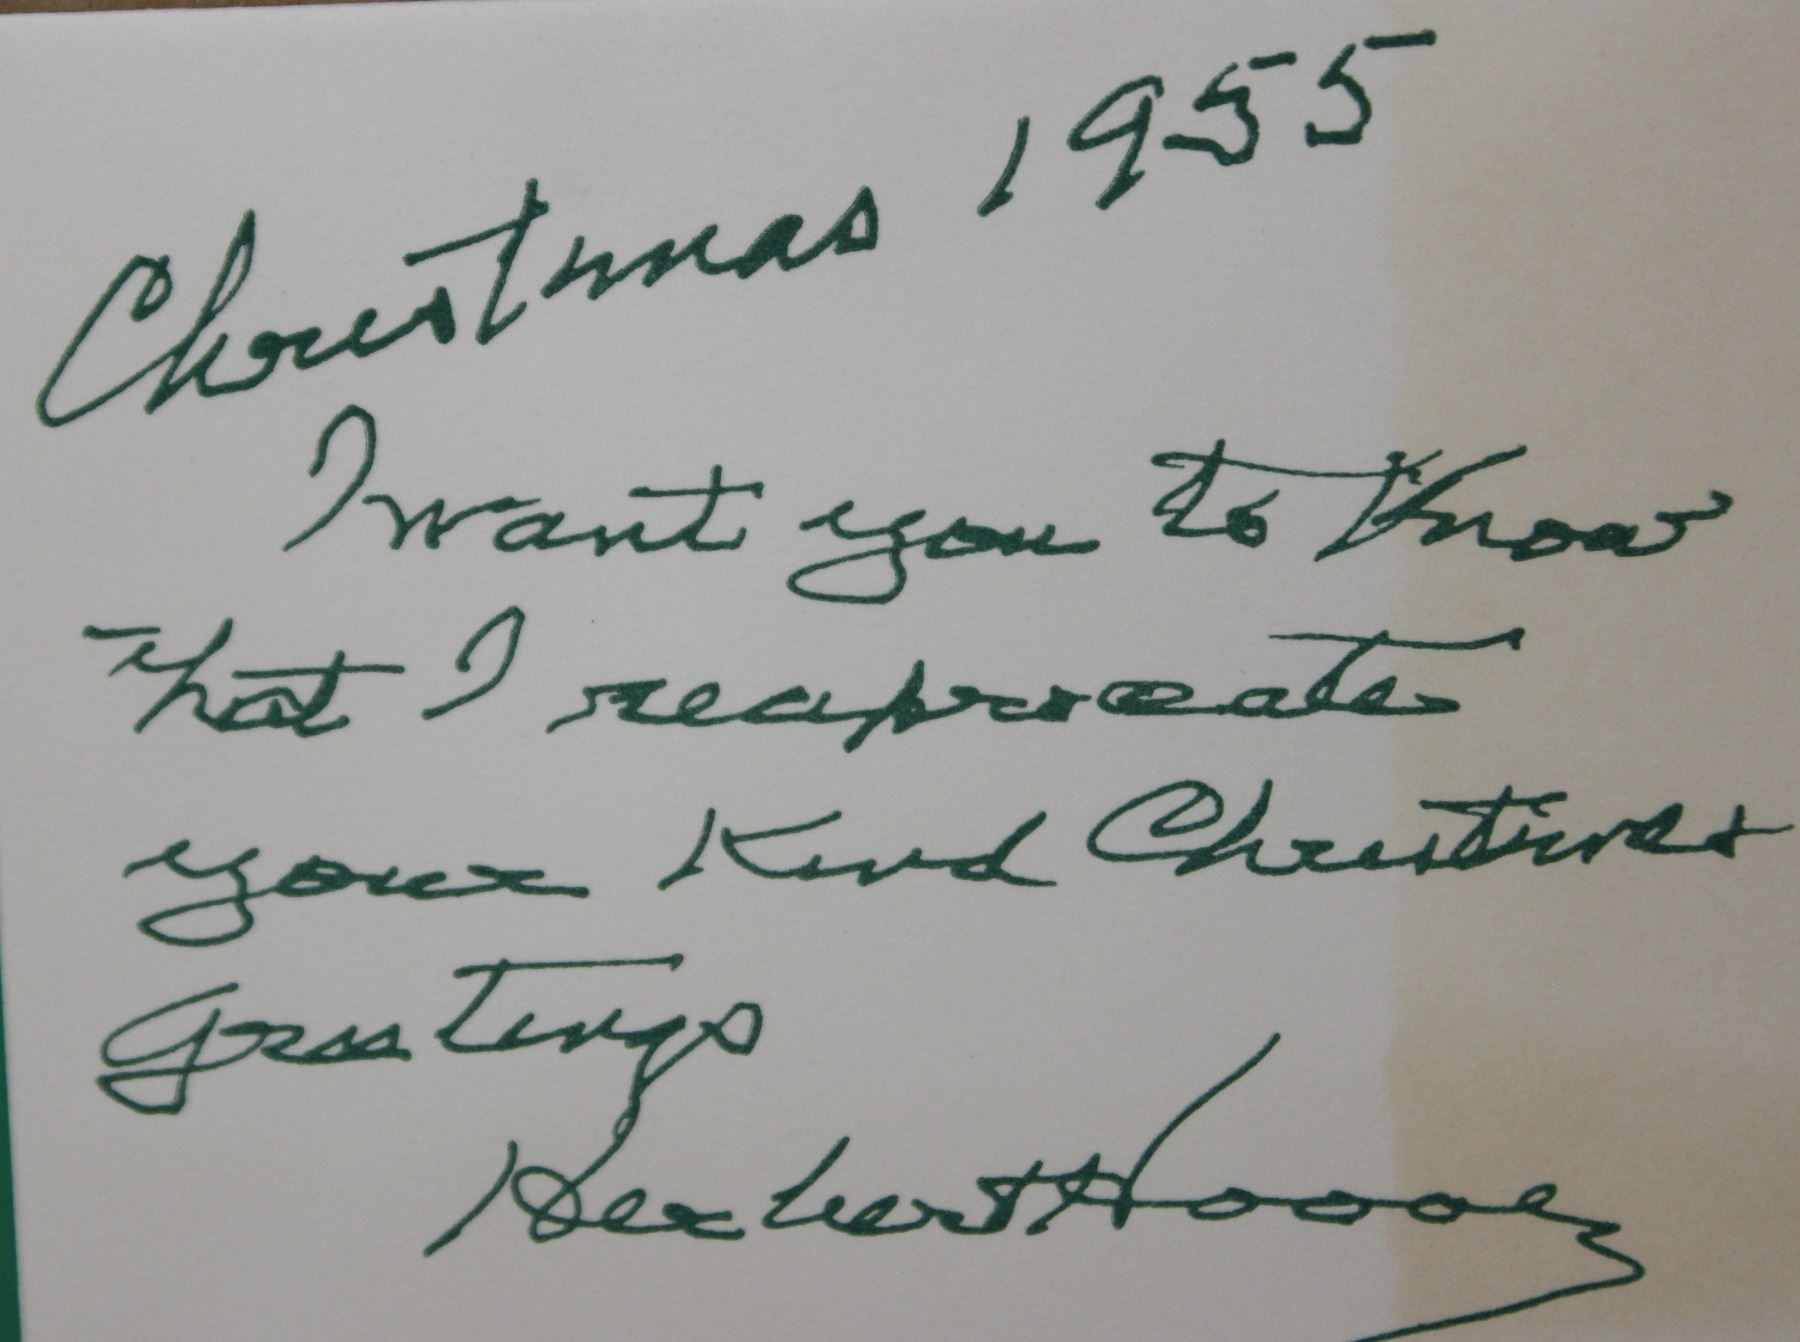 Christmas 1955
I want you to Know
that I reciprocate
your Kind Christmas
Greetings
Herbert Hoover